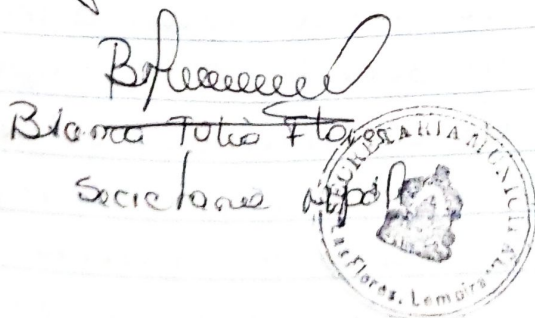 Blanca Julia Flores
Secretaria Mpal
SECRETARIA MUNICIPAL
Las Flores, Lempira